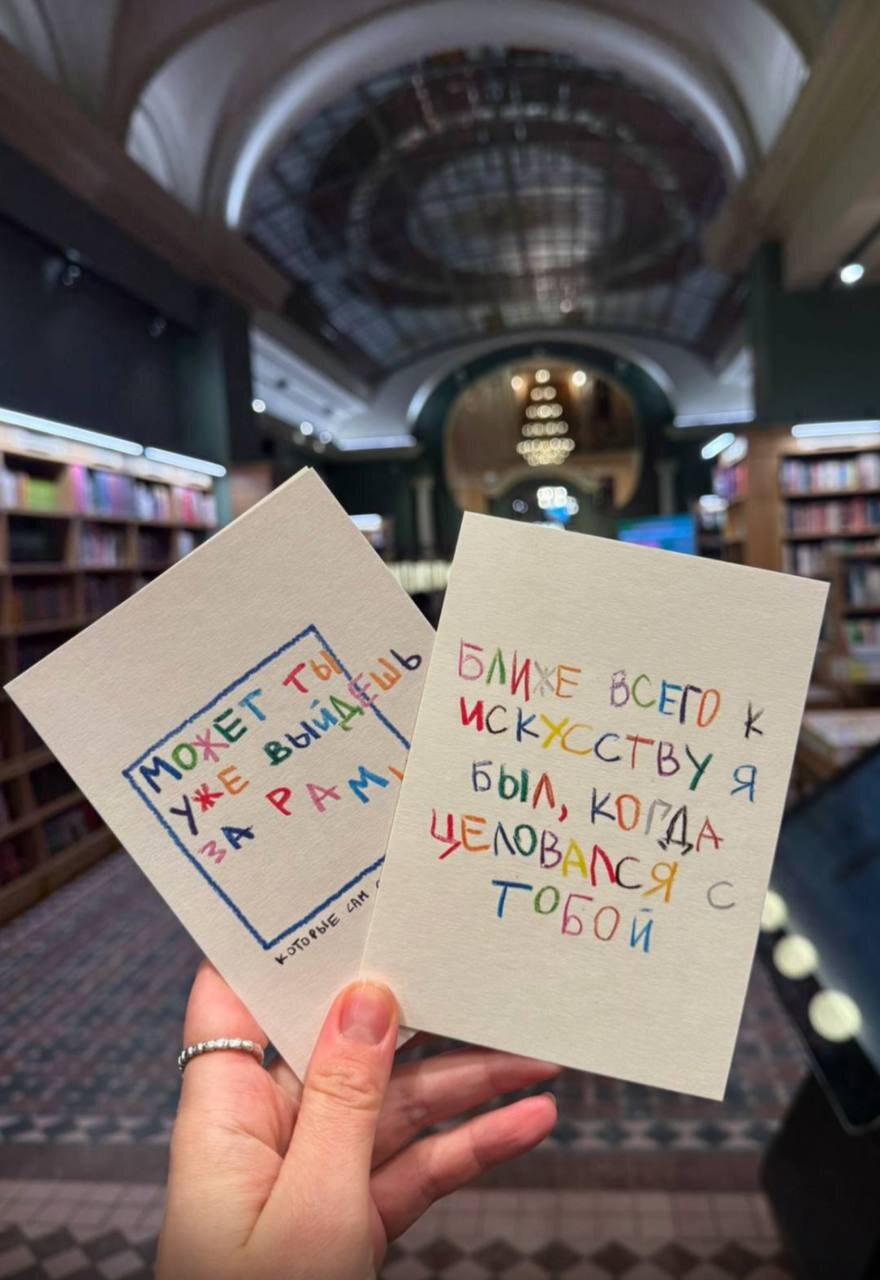 МОЖЕТ ТЫ
УЖЕ ВЫЙДЕШЬ
ЗА РАМ
КОТОРЫЕ САМ
БЛИЖЕ ВСЕГО К
ИСКУССТВУ Я
БЫЛ, КОГДА
ЦЕЛОВАЛСЯ С
ТОБОЙ